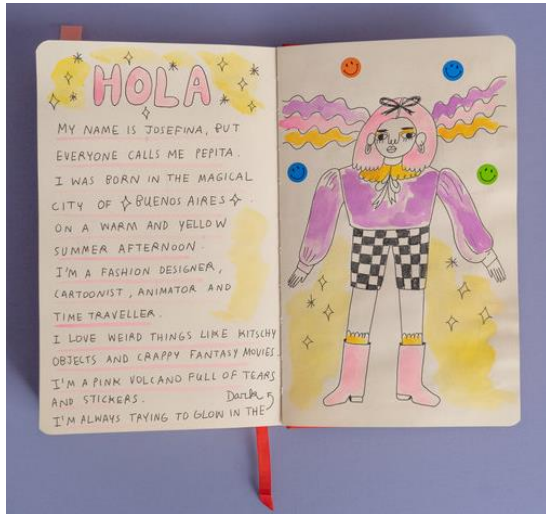 HOLA
MY NAME IS JOSEFINA, BUT
EVERYONE CALLS ME PEPITA.
I WAS BORN IN THE MAGICAL
CITY OF BUENOS AIRES.
ON A WARM AND YELLOW
SUMMER AFTERNOON.
I'M A FASHION DESIGNER,
CARTOONIST, ANIMATOR AND
TIME TRAVELLER.
I LOVE WEIRD THINGS LIKE KITSCHY
OBJECTS AND CRAPPY FANTASY MOVIES.
I'M A PINK VOLCANO FULL OF TEARS
AND STICKERS.
I'M ALWAYS TRYING TO GLOW IN THE Dark